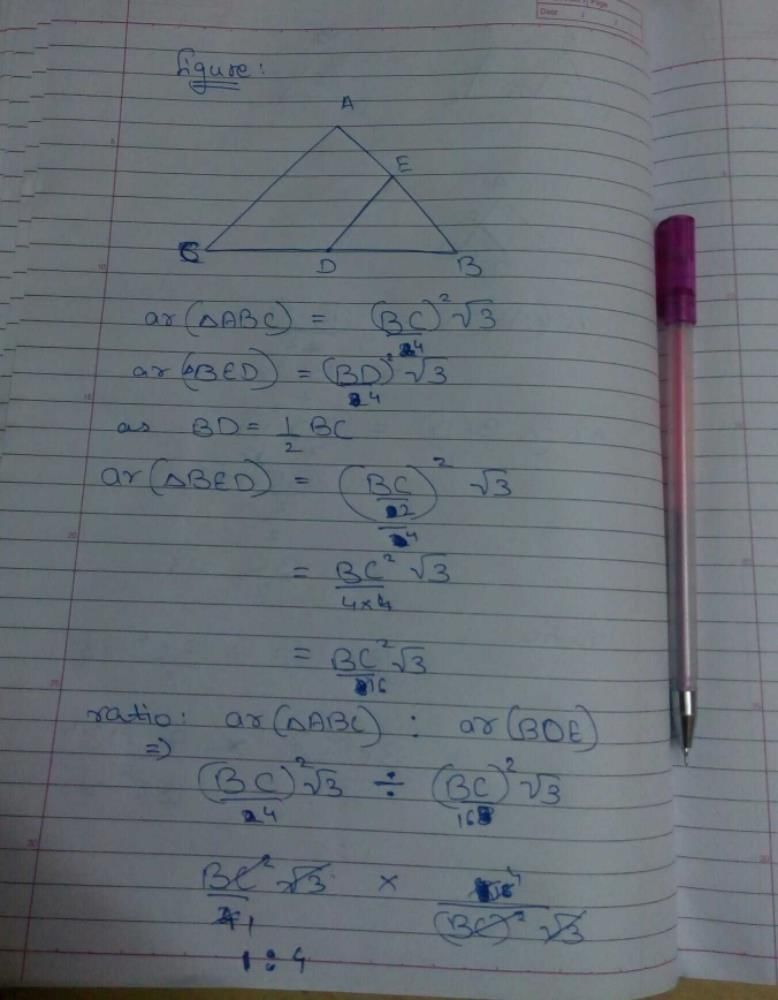 Page
Date
figure:
A
E
C D B
ar(△ABC) = (BC)²√3 / 4
ar(△BED) = (BD)²√3 / 4
as BD = 1/2 BC
ar(△BED) = (BC/2)² √3 / 4
= BC²√3 / 4×4
= BC²√3 / 16
ratio: ar(△ABC) : ar(BDE)
⇒ (BC)²√3 / 4 ÷ (BC)²√3 / 16
BC²√3 / 1 × 4 / (BC)²√3
1 : 4